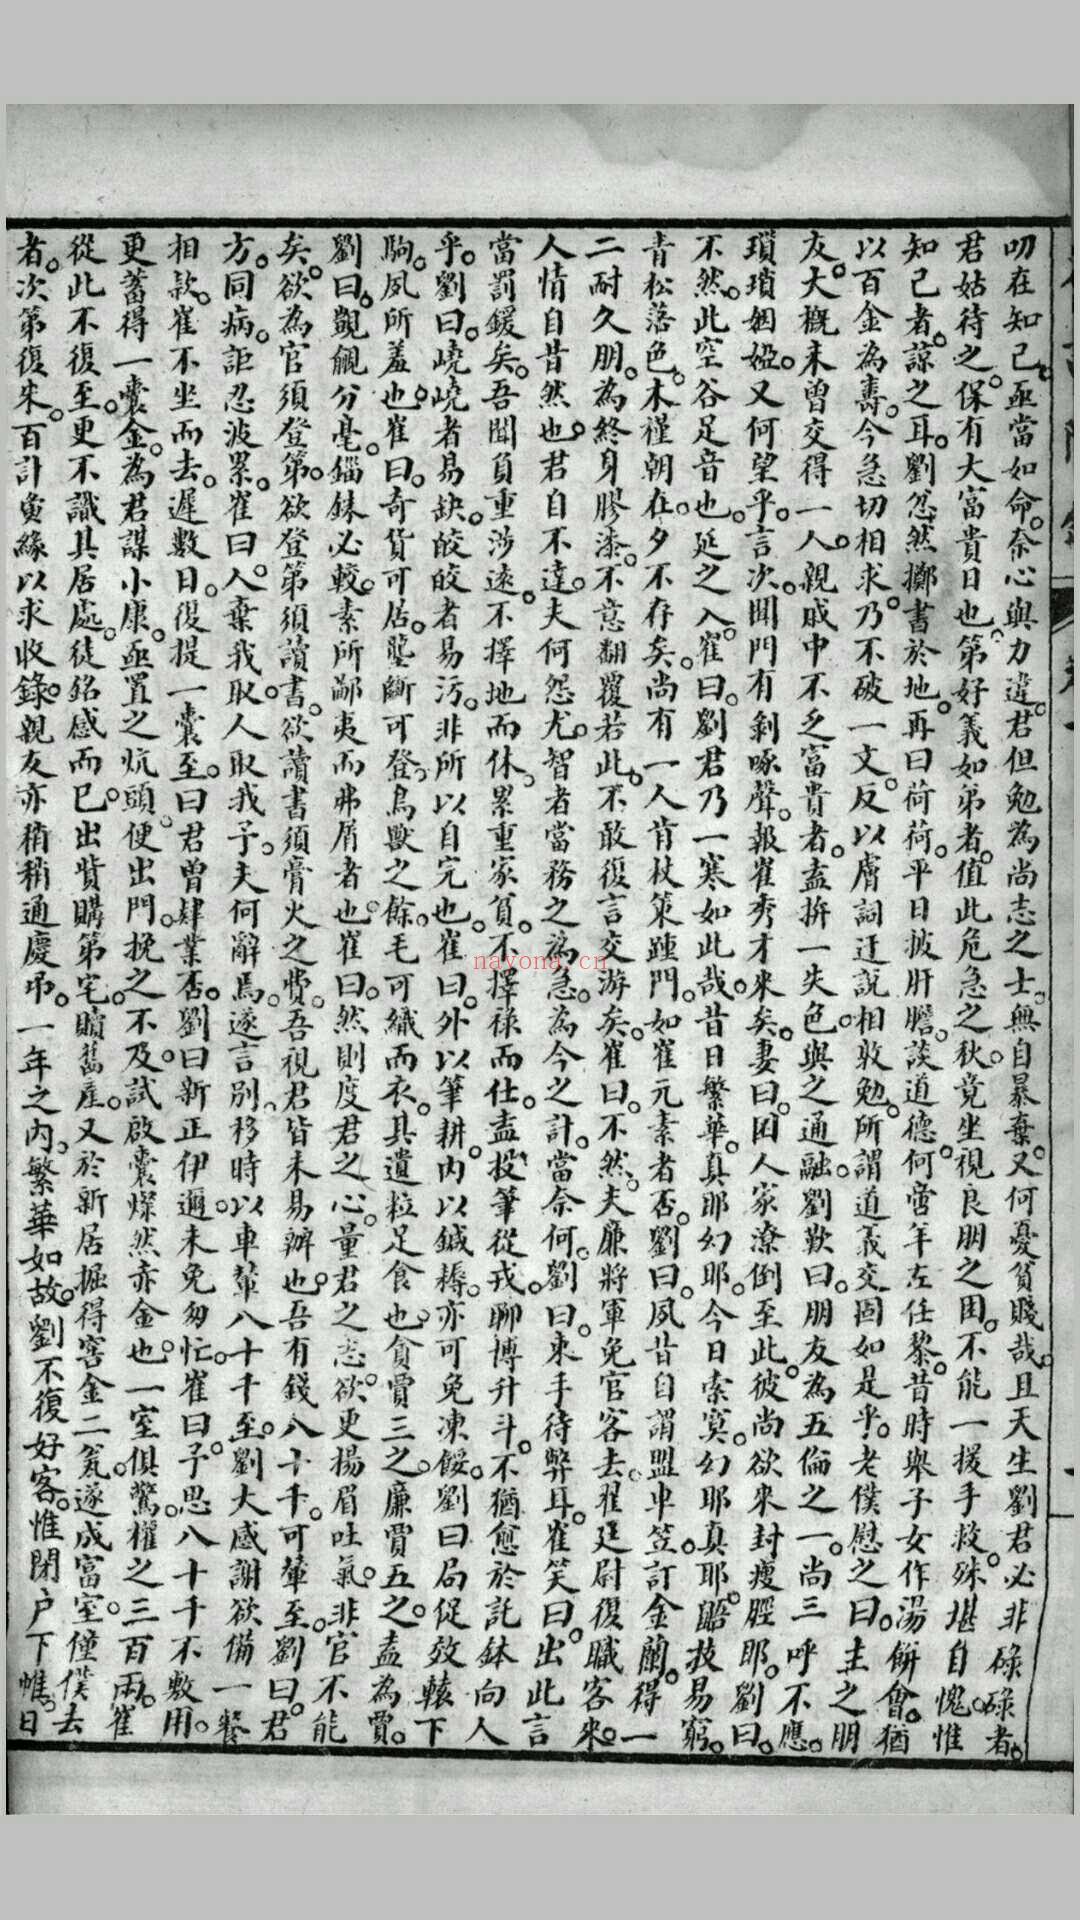 叨在知己。亟當如命。奈心與力違。君但勉為尚志之士。無自暴棄。又何憂貧賤哉。且天生劉君必非碌碌者。
君姑待之。保有大富貴日也。第好義如弟者。值此危急之秋。竟坐視良朋之困。不能一援手救。殊堪自愧。惟
知己者。諒之耳。劉忽然擲書於地。再曰荷荷。平日披肝膽。談道德。何啻年左任黎。昔時與子女作湯餅會。猶
以百金為壽。今急切相求。乃不破一文。反以膚詞迂說相敦勉。所謂道義交固如是乎。老僕慰之曰。主之朋
友。大概未曾交得一人。親戚中不乏富貴者。盍拚一失色。與之通融。劉歎曰。朋友為五倫之一。尚三呼不應。
瑣瑣姻婭。又何望乎。言次。聞門有剝啄聲。報崔秀才來矣。妻曰。困人家潦倒至此。彼尚欲來封瘦脛耶。劉曰。
不然。此空谷足音也。延之入。崔曰。劉君乃一寒如此哉。昔日繁華。真耶幻耶。今日索寞。幻耶真耶。鼯技易窮。
青松落色。木槿朝在。夕不存矣。尚有一人肯杖策踵門。如崔元素者否。劉曰。夙昔自謂盟車笠。訂金蘭。得一
二耐久朋。為終身膠漆。不意翻覆若此。不敢復言交游矣。崔曰。不然。夫廉將軍免官客去。翟廷尉復職客來。
人情自昔然也。君自不達。夫何怨尤。智者當務之為急。為今之計。當奈何。劉曰。束手待弊耳。崔笑曰。出此言
當罰鍰矣。吾聞負重涉遠。不擇地而休。累重家貧。不擇祿而仕。盍投筆從戎。聊博升斗。不猶愈於託鉢向人
乎。劉曰。嶢嶢者易缺。皎皎者易污。非所以自完也。崔曰。外以筆耕。內以鍼耨。亦可免凍餒。劉曰局促效轅下
駒。夙所羞也。崔曰。奇貨可居。壟斷可登。鳥獸之餘。毛可織而衣。其遺粒足食也。貪賈三之。廉賈五之。盍為賈。
劉曰。覬覦分毫。錙銖必較。素所鄙夷而弗屑者也。崔曰。然則度君之心。量君之志。欲更揚眉吐氣。非官不能
矣。欲為官須登第。欲登第須讀書。欲讀書須膏火之費。吾視君皆未易辦也。吾有錢八十千。可輦至。劉曰。君
方。同病。詎忍波累。崔曰。人棄我取。人取我予。夫何辭焉。遂言別。移時以車輦八十千至。劉大感謝。欲備一餐
相款。崔不坐而去。遲數日。復提一囊至。曰君曾肄業否。劉曰新正伊邇。未免匆忙。崔曰。子思八十千不敷用。
更蓄得一囊金。為君謀小康。亟置之炕頭。便出門。挽之不及。試啟囊。燦然赤金也。一室俱驚。權之三百兩。崔
從此不復至。更不識其居處。徒銘感而已。出貲購第宅。贖舊產。又於新居掘得窖金二瓮。遂成富室。僮僕去
者。次第復來。百計夤緣以求收錄。親友亦稍稍通慶弔。一年之內。繁華如故。劉不復好客。惟閉户下帷。日
nayona.cn